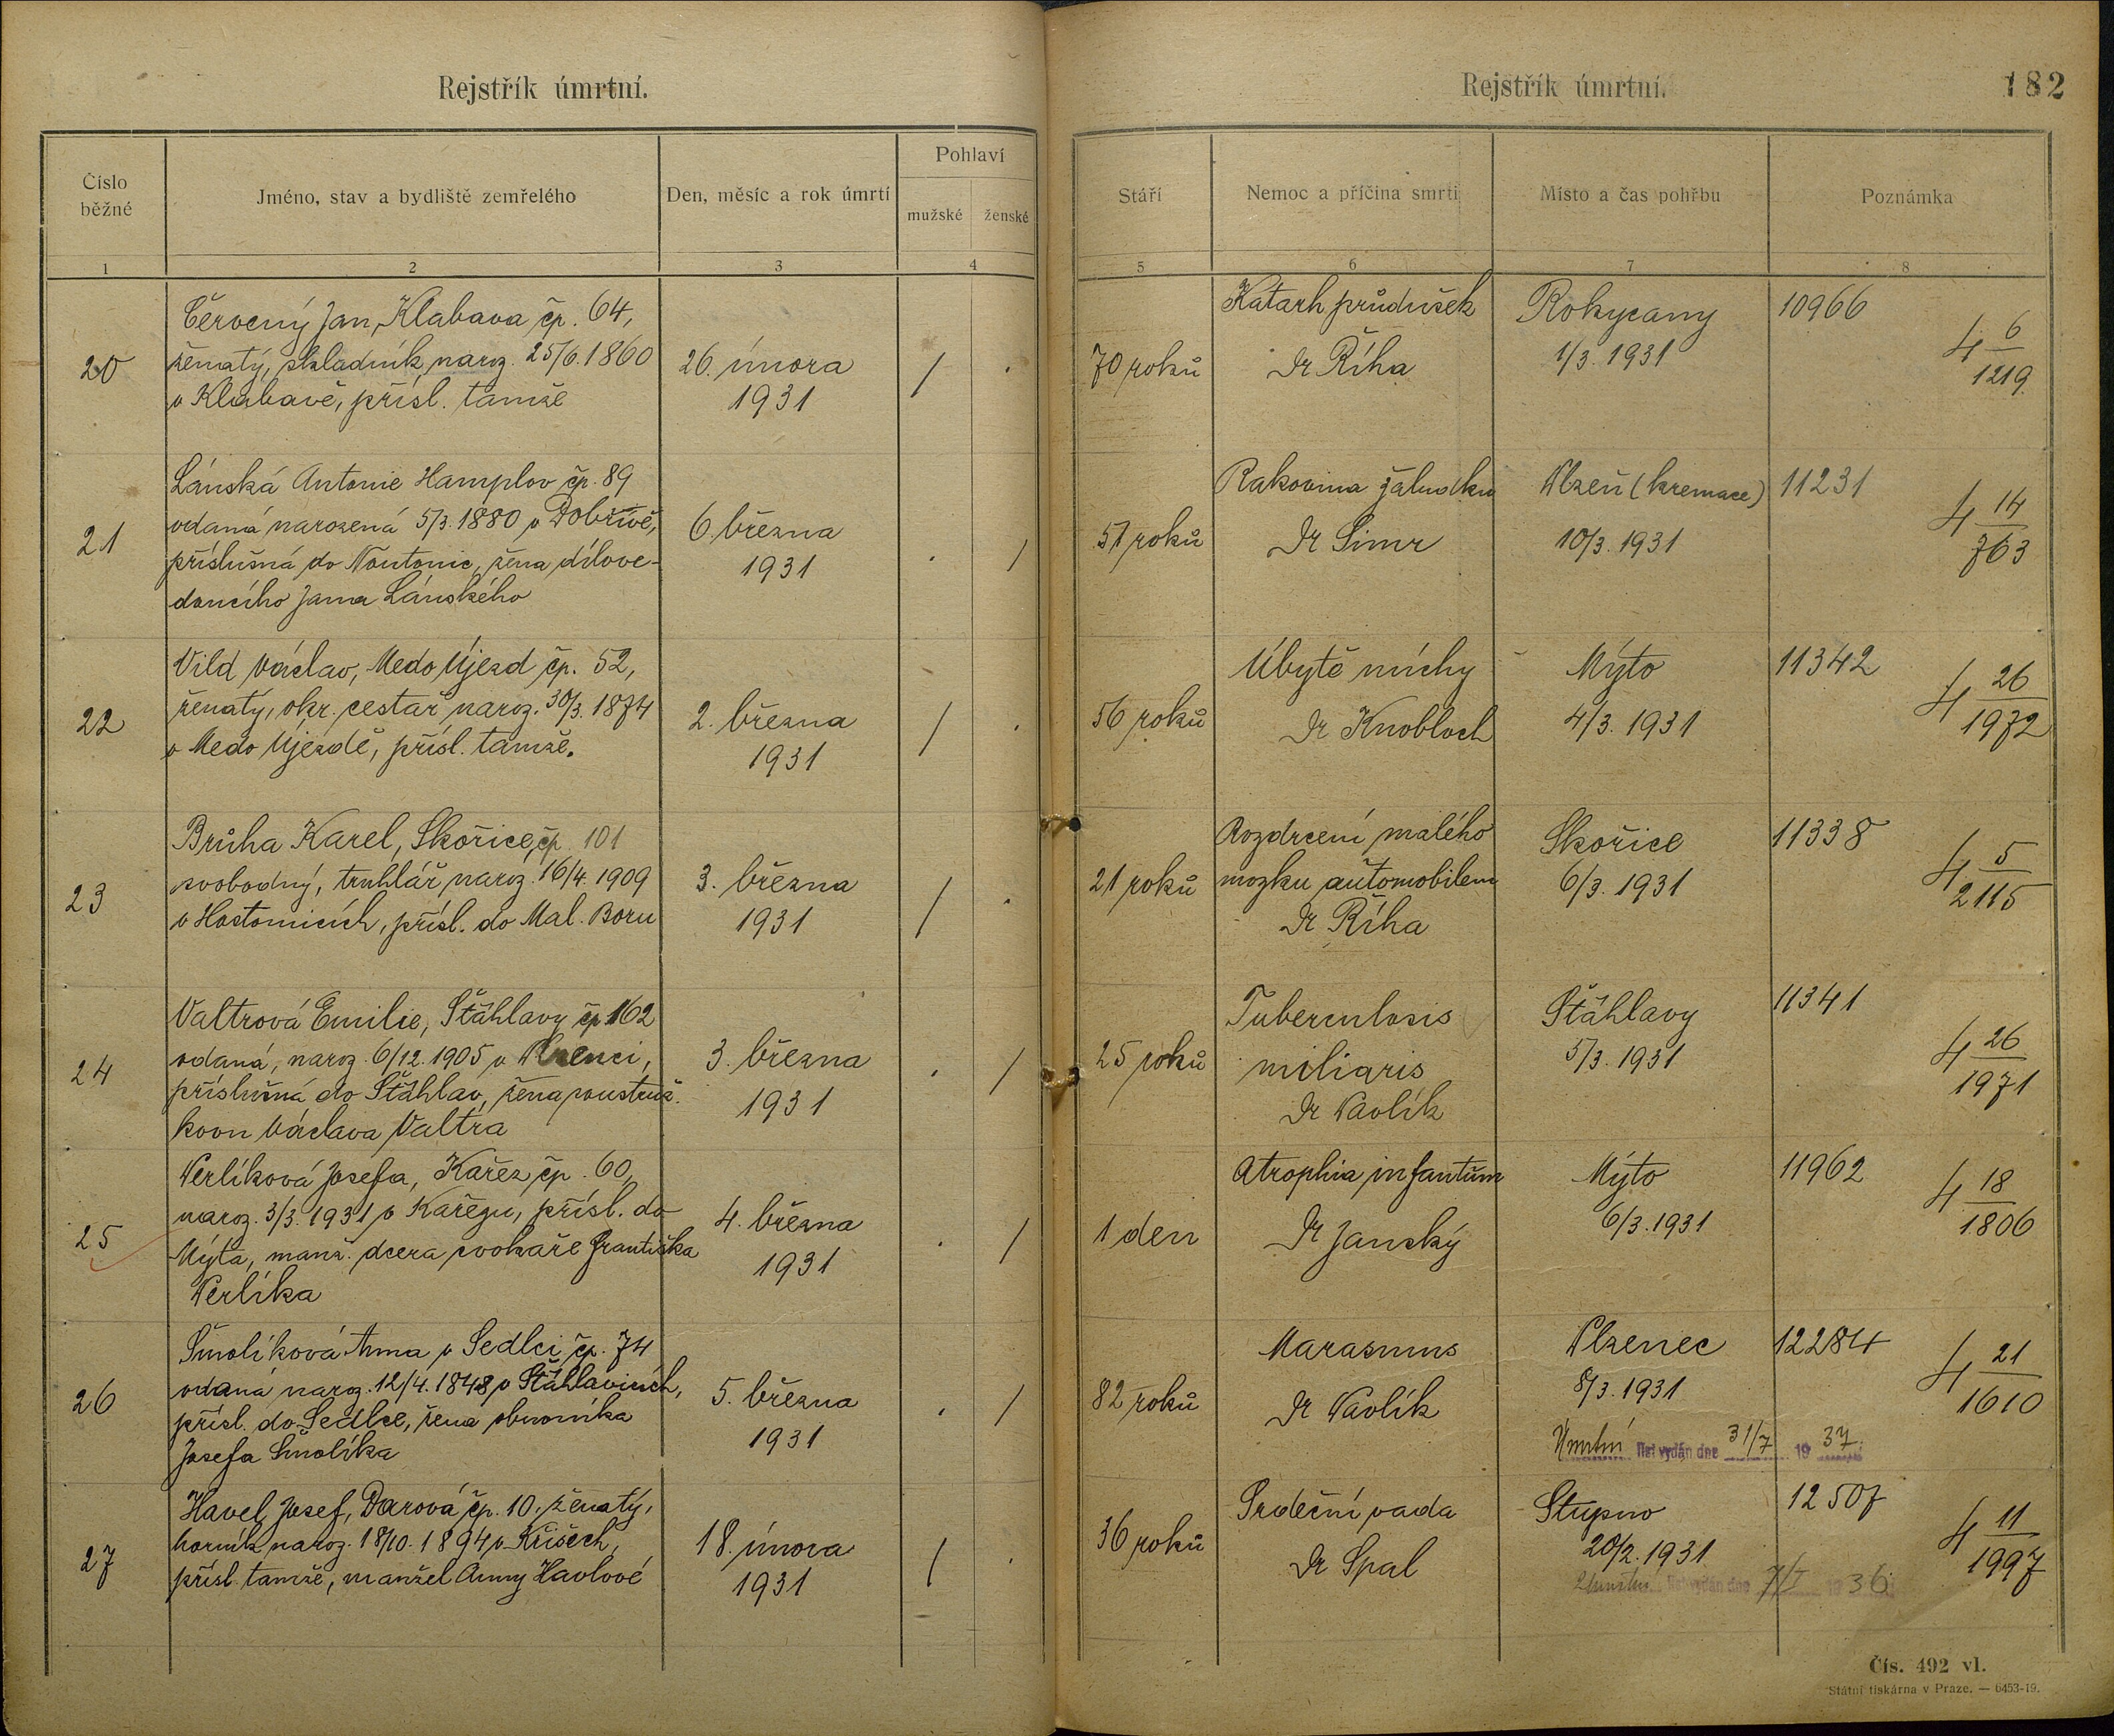 Rejstřík úmrtní.
Číslo běžné
Jméno, stav a bydliště zemřelého
Den, měsíc a rok úmrtí
Pohlaví
mužské
ženské
1
2
3
4
Rejstřík úmrtní.
182
Stáří
Nemoc a příčina smrti
Místo a čas pohřbu
Poznámka
5
6
7
8
20
Červený Jan, Klabava čp. 64,
ženatý, skladník, naroz. 25/6. 1860
v Klabavě, přísl. tamže
26. února
1931
/ .
70 roků
Katarh průdušek
Dr Říha
Rokycany
1/3. 1931
10966
4 6/1219
21
Lánská Antonie Hamplov čp. 89
vdaná narozená 5/3. 1880 v Dobřívě,
příslušná do Noutonic, žena dílove-
doucího Jana Lánského
6. března
1931
. /
51 roků
Rakovina žaludku
Dr Simr
Plzeň (kremace)
10/3. 1931
11231
4 14/763
22
Vild Václav, Medo Újezd čp. 52,
ženatý, okr. cestař naroz. 30/3. 1874
v Medo Újezdě, přísl. tamže.
2. března
1931
/ .
56 roků
Úbytě míchy
Dr Knobloch
Mýto
4/3. 1931
11342
4 26/1972
23
Brůha Karel, Skořice, čp. 101
svobodný, truhlář, naroz. 16/4. 1909
v Hostomicích, přísl. do Mal. Boru
3. března
1931
/ .
21 roků
Rozdrcení malého
mozku automobilem
Dr Říha
Skořice
6/3. 1931
11338
4 5/2115
24
Valtrová Emilie, Šťáhlavy čp 162
vdaná, naroz. 6/12. 1905 v Plzenci,
příslušná do Šťáhlav, žena soustruž.
kovu Václava Valtra
3. března
1931
. /
25 roků
Tuberculosis
miliaris
Dr Pavlík
Šťáhlavy
5/3. 1931
11341
4 26/1971
25
Perlíková Josefa, Kařez čp. 60,
naroz. 3/3. 1931 v Kařezu, přísl. do
Mýta, manž. dcera cvokaře Františka
Perlíka
4. března
1931
. /
1 den
Atrophia infantum
Dr Janský
Mýto
6/3. 1931
11962
4 18/1806
26
Šmolíková Anna v Sedlci čp. 74
vdaná naroz. 12/4. 1848 v Šťáhlavicích,
přísl. do Sedlce, žena obuvníka
Josefa Šmolíka
5. března
1931
. /
82 roků
Marasmus
Dr Pavlík
Plzenec
8/3. 1931
Úmrtní list vydán dne 31/7 1937
12284
4 21/1610
27
Havel Josef, Darová čp. 10, ženatý,
horník naroz. 18/10. 1894 v Křišech,
přísl. tamže, manžel Anny Havlové
18. února
1931
/ .
36 roků
Srdeční vada
Dr Spal
Stupno
20/2. 1931
Úmrtní list vydán dne 7/I 1936
12507
4 11/1997
Čís. 492 vl.
Státní tiskárna v Praze. — 6453-19.